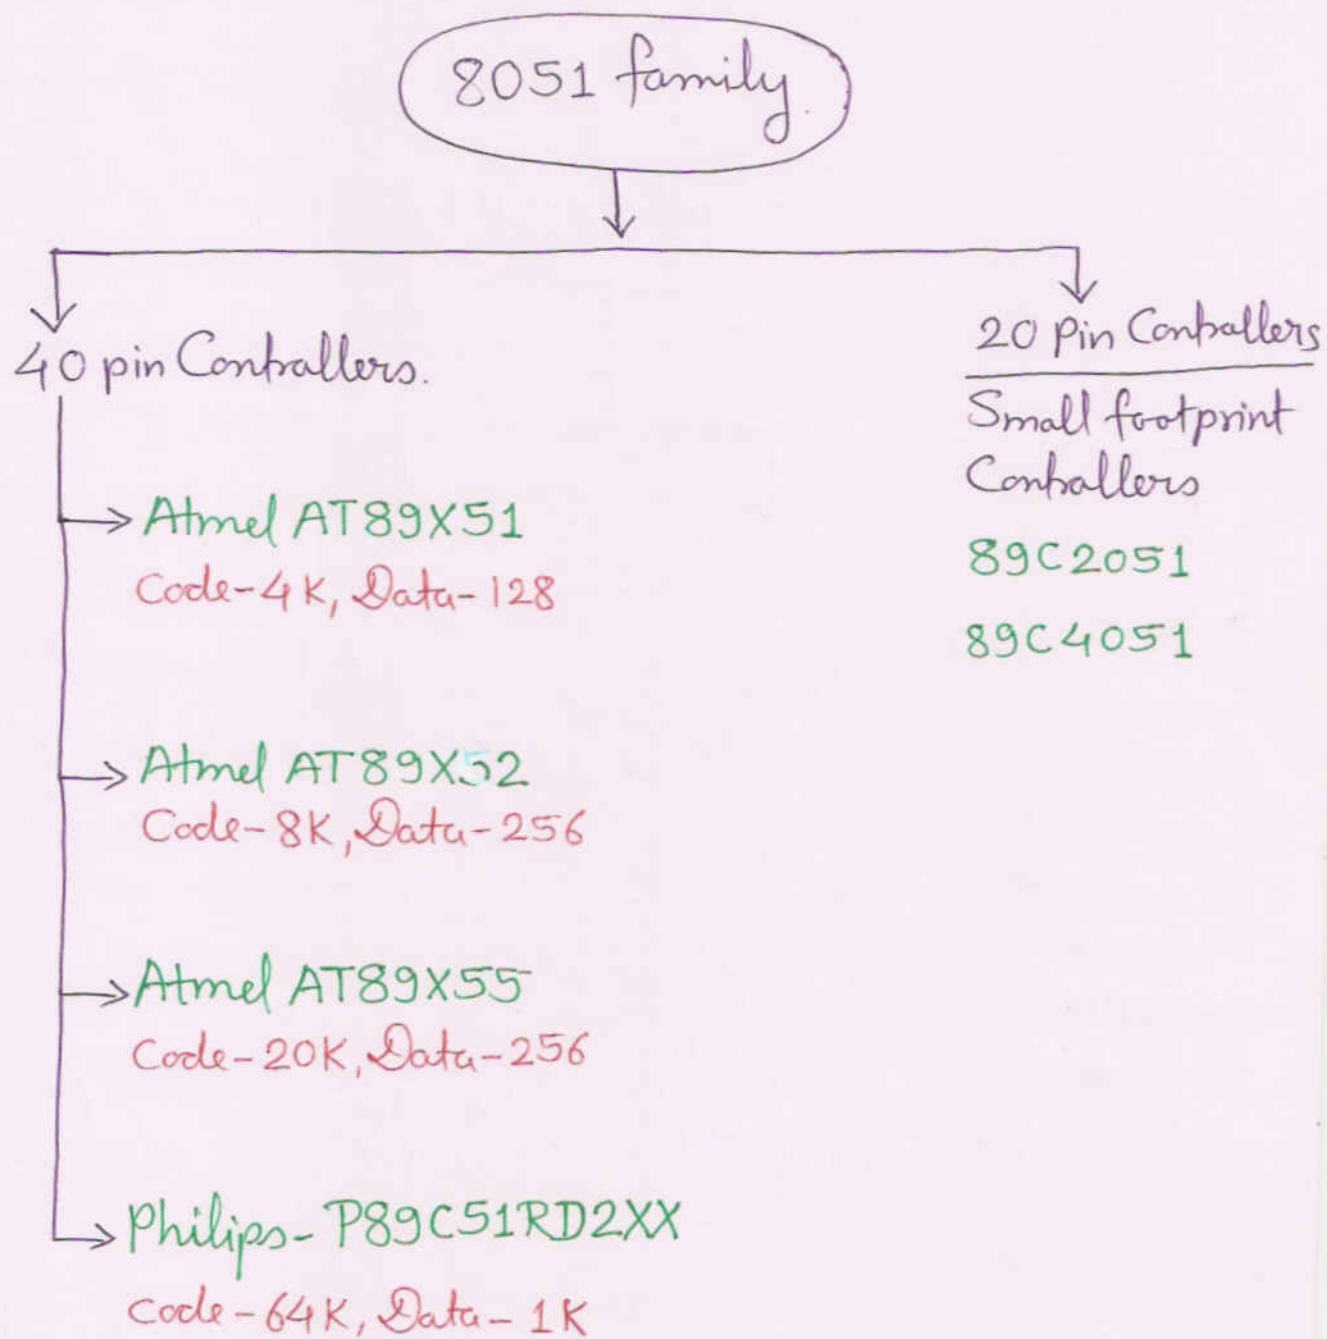 8051 family
40 pin Controllers.
Atmel AT89X51
Code-4K, Data-128
Atmel AT89X52
Code-8K, Data-256
Atmel AT89X55
Code-20K, Data-256
Philips-P89C51RD2XX
Code-64K, Data-1K
20 Pin Controllers
Small footprint
Controllers
89C2051
89C4051